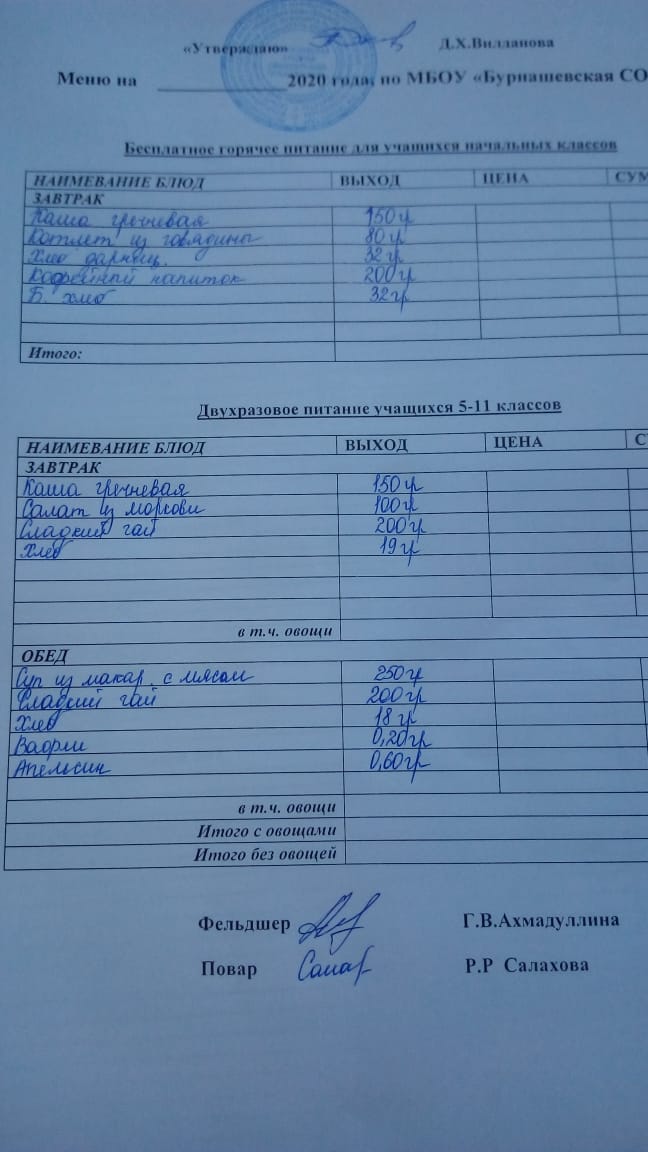 «Утверждаю» Д.Х.Вилданова
Меню на ____________ 2020 года, по МБОУ «Бурнашевская СО
Бесплатное горячее питание для учащихся начальных классов
НАИМЕВАНИЕ БЛЮД ВЫХОД ЦЕНА СУМ
ЗАВТРАК
Каша гречневая 150 гр
Котлет из говядины 80 гр
Хлеб дарниц. 32 гр
Кофейный напиток 200 гр
Б. хлеб 32 гр
Итого:
Двухразовое питание учащихся 5-11 классов
НАИМЕВАНИЕ БЛЮД ВЫХОД ЦЕНА С
ЗАВТРАК
Каша гречневая 150 гр
Салат из моркови 100 гр
Сладкий чай 200 гр
Хлеб 19 гр
в т.ч. овощи
ОБЕД
Суп из макар. с мясом 250 гр
Сладкий чай 200 гр
Хлеб 18 гр
Вафли 0,20 гр
Апельсин 0,60 гр
в т.ч. овощи
Итого с овощами
Итого без овощей
Фельдшер Г.В.Ахмадуллина
Повар Салах Р.Р Салахова